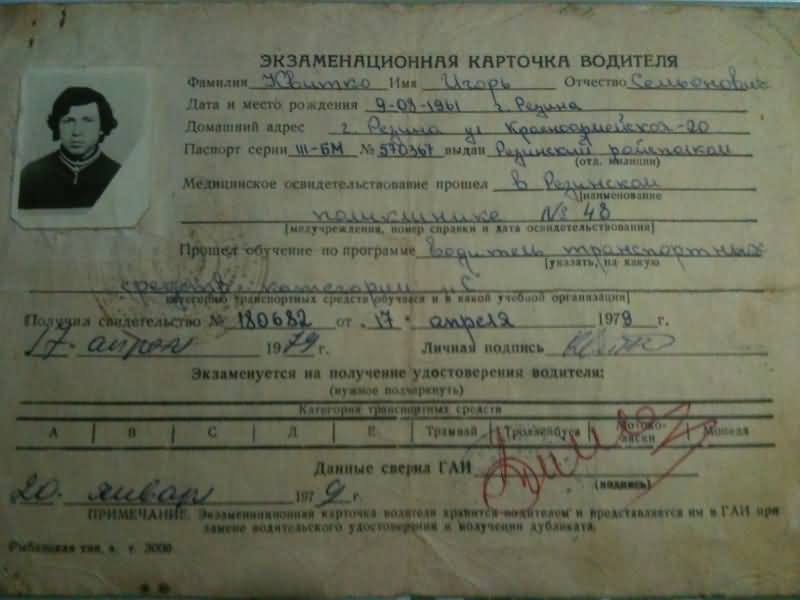 ЭКЗАМЕНАЦИОННАЯ КАРТОЧКА ВОДИТЕЛЯ
Фамилия Квитко Имя Игорь Отчество Семёнович
Дата и место рождения 9-03-1961 г. Резина
Домашний адрес г. Резина ул Красноармейская-20
Паспорт серии III-БМ № 570367 выдан Резинский райсполком
(отд. милиции)
Медицинское освидетельствование прошел в Резинской
[наименование
поликлинике № 48
медучреждения, номер справки и дата освидетельствования]
Прошел обучение по программе водитель транспортных
[указать, на какую
средств категории "С
категорию транспортных средств обучался и в какой учебной организации]
Получил свидетельство № 180682 от 17 апреля 1979 г.
17 апреля 1979 г. Личная подпись
Экзаменуется на получение удостоверения водителя:
(нужное подчеркнуть)
Категория транспортных средств
А | В | С | Д | Е | Трамвай | Троллейбуса | Мотоколяски | Мопеда
Данные сверил ГАИ
(подпись)
20 январ 1979 г.
ПРИМЕЧАНИЕ. Экзаменационная карточка водителя хранится водителем и представляется им в ГАИ при
замене водительского удостоверения и получении дубликата.
з. т. 3000